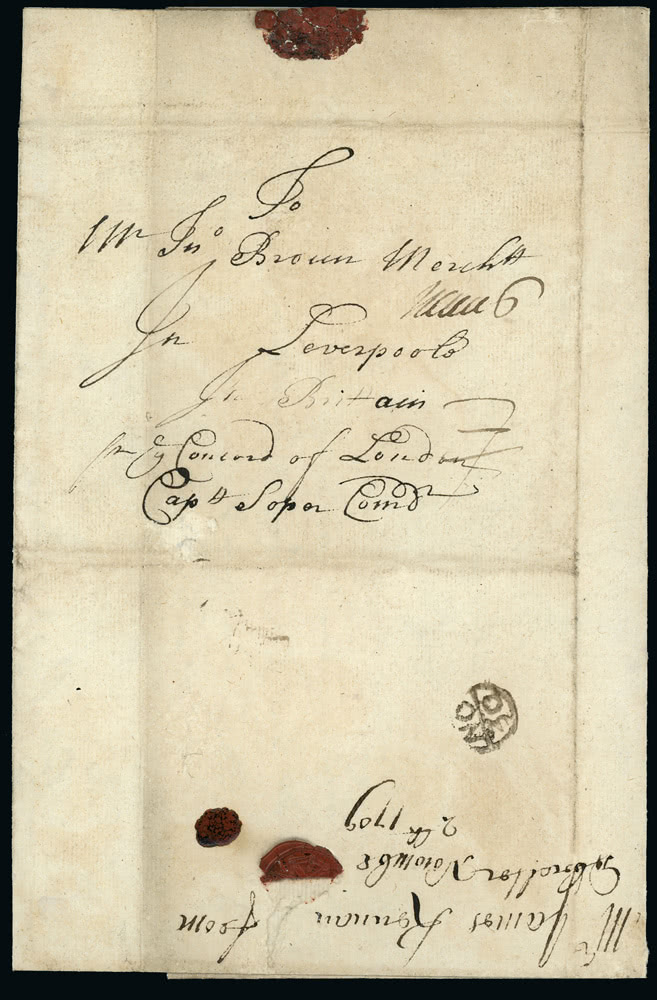 To
Mr Jno Brown Merchtt
In Leverpoole
In Brittain
pr ye Concord of London
Captt Soper Comdr
NO
30
Mr James Rennan from
Novembr
2th 1709